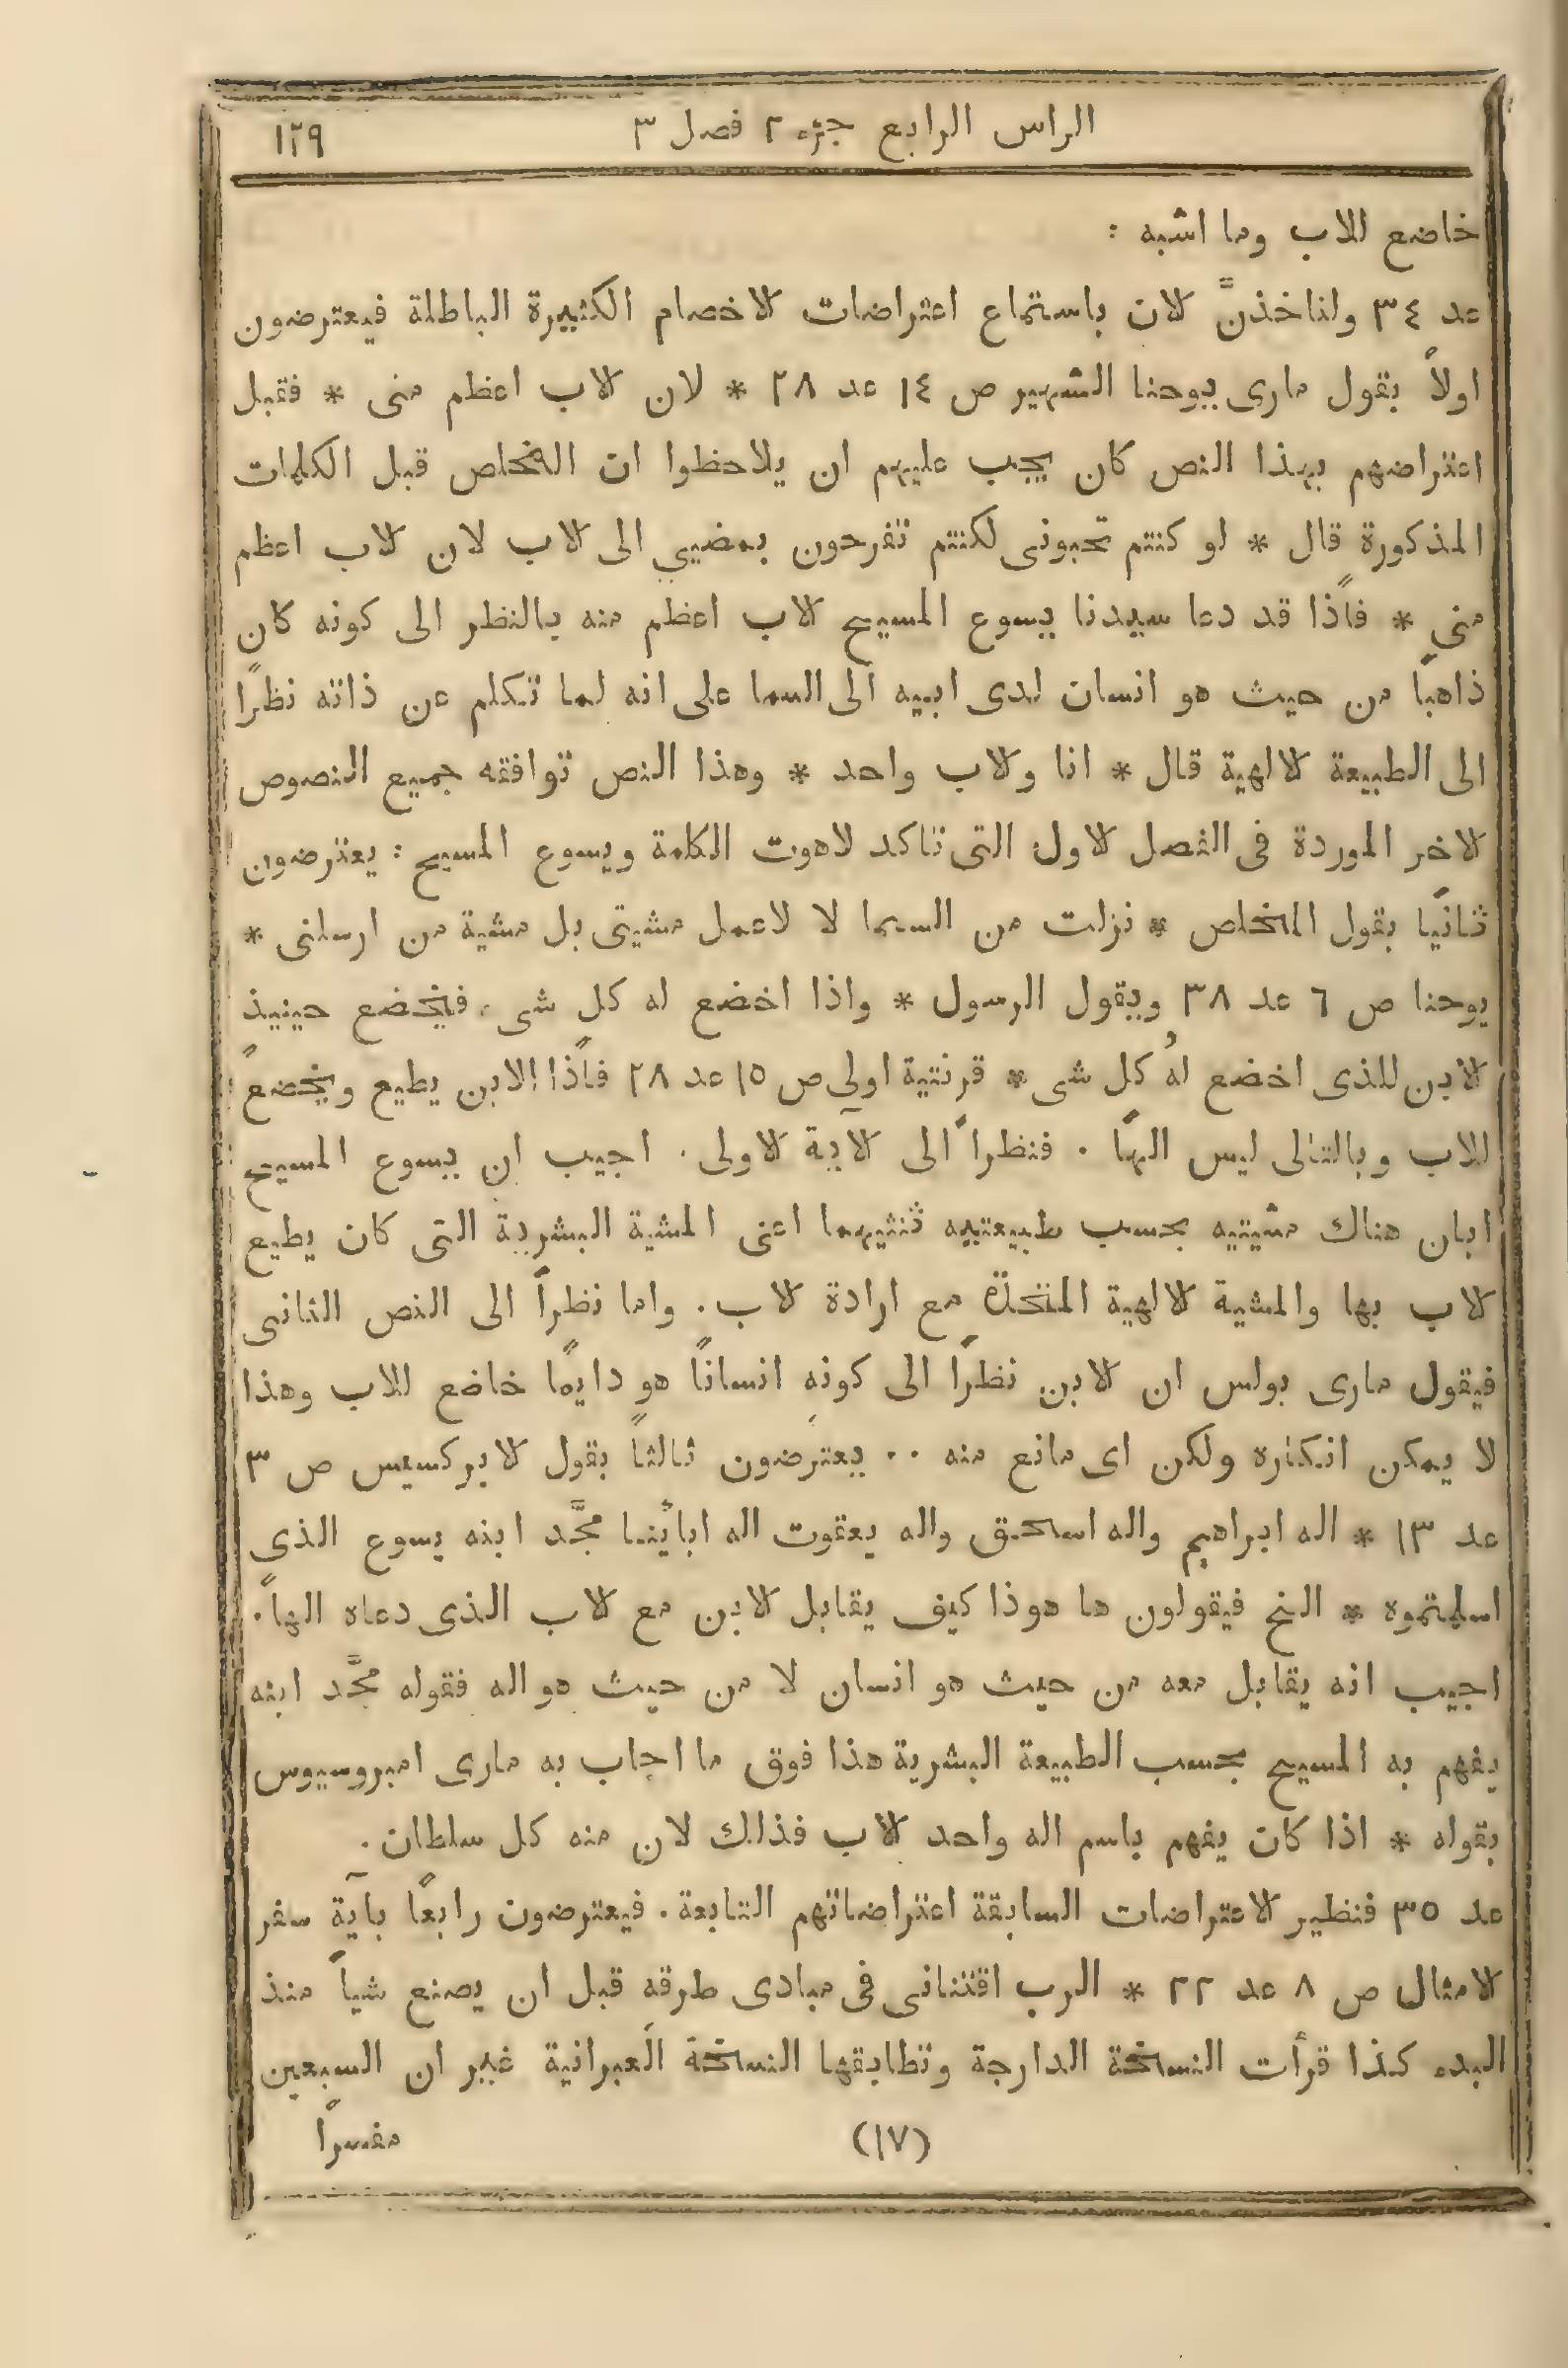 الراس الرابع جزء ٢ فصل ٣ ١٢٩
خاضع للاب وما اشبه :
عد ٣٤ ولناخذنَّ الان باستماع اعتراضات الاخصام الكثيرة الباطلة فيعترضون
اولاً بقول مارى يوحنا الشهير ص ١٤ عد ٢٨ * لان الاب اعظم منى * فقبل
اعتراضهم بهذا النص كان يجب عليهم ان يلاحظوا ان المخلص قبل الكلمات
المذكورة قال * لو كنتم تحبونى لكنتم تفرحون بمضيي الى الاب لان الاب اعظم
مني * فاذًا قد دعا سيدنا يسوع المسيح الاب اعظم منه بالنظر الى كونه كان
ذاهباً من حيث هو انسان لدى ابيه الى السما على انه لما تكلم عن ذاته نظرًا
الى الطبيعة الالهية قال * انا والاب واحد * وهذا النص توافقه جميع النصوص
الاخر الموردة فى الفصل الاول التى تاكد لاهوت الكلمة ويسوع المسيح : يعترضون
ثانيًا بقول المخلص * نزلت من السما لا لاعمل مشيتى بل مشية من ارسلنى *
يوحنا ص ٦ عد ٣٨ وبقول الرسول * واذا اخضع له كل شى . فيخضع حينيذ
الابن للذى اخضع لهُ كل شى * قرنتية اولى ص ١٥ عد ٢٨ فاذًا الابن يطيع ويخضع
للاب وبالتالى ليس الهًا . فنظراً الى الآية الاولى . اجيب ان يسوع المسيح
ابان هناك مشيتيه بحسب طبيعتيه ثنثيهما اعنى المشية البشرية التى كان يطيع
الاب بها والمشية الالهية المتحدة مع ارادة الاب . واما نظراً الى النص الثانى
فيقول مارى بولس ان الابن نظرًا الى كونه انسانًا هو دايمًا خاضع للاب وهذا
لا يمكن انكاره ولكن اى مانع منه .. يعترضون ثالثاً بقول الابركسيس ص ٣
عد ١٣ * اله ابراهيم واله اسحق واله يعقوت اله ابائنا مجَّد ابنه يسوع الذى
اسلمتموه * الخ فيقولون ها هوذا كيف يقابل الابن مع الاب الذى دعاه الهاً .
اجيب انه يقابل معه من حيث هو انسان لا من حيث هو اله فقوله مجَّد ابنه
يفهم به المسيح بحسب الطبيعة البشرية هذا فوق ما اجاب به مارى امبروسيوس
بقوله * اذا كان يفهم باسم اله واحد الاب فذلك لان منه كل سلطان .
عد ٣٥ فنظير الاعتراضات السابقة اعتراضاتهم التابعة . فيعترضون رابعًا بآية سفر
الامثال ص ٨ عد ٢٢ * الرب اقتنانى فى مبادى طرقه قبل ان يصنع شياً منذ
البدء كذا قرأت النسخة الدارجة وتطابقها النسخة العبرانية غير ان السبعين
(١٧) مفسرًا